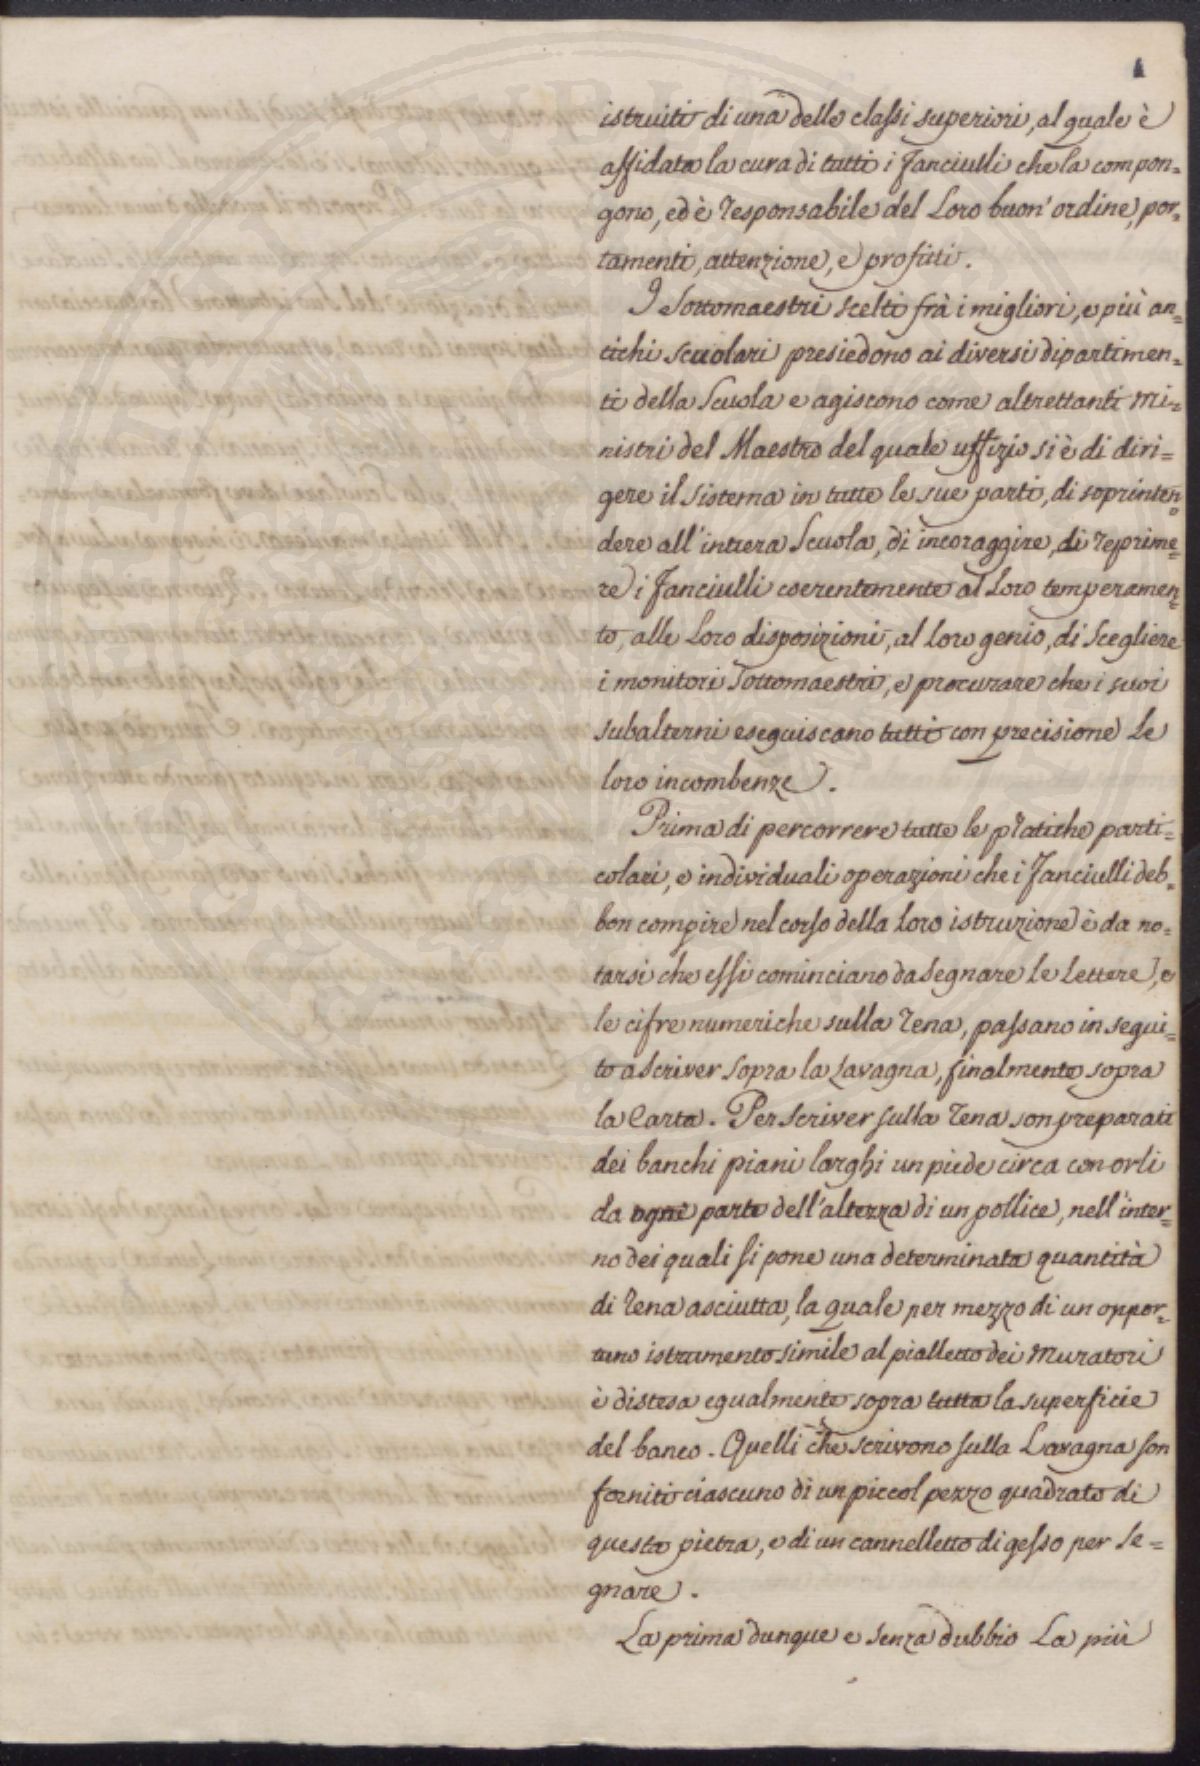 istruiti di una delle classi superiori, al quale è
affidata la cura di tutti i Fanciulli che la compon=
gono, ed è responsabile del Loro buon' ordine, por=
tamenti, attenzione, e profitti.
I Sottomaestri scelti frà i migliori, e più an=
tichi scuolari presiedono ai diversi dipartimen=
ti della Scuola e agiscono come altrettanti Mi=
nistri del Maestro del quale uffizio si è di diri=
gere il Sistema in tutte le sue parti, di soprinten=
dere all'intiera Scuola, di incoraggire, di reprime=
re i Fanciulli coerentemente al Loro temperamen=
to, alle Loro disposizioni, al loro genio, di Scegliere
i monitori Sottomaestri, e procurare che i suoi
subalterni eseguiscano tutti con precisione Le
loro incombenze.
Prima di percorrere tutte le pratiche parti=
colari, e individuali operazioni che i Fanciulli deb=
bon compire nel corso della Loro istruzione è da no=
tarsi che essi cominciano da Segnare le Lettere, e
le cifre numeriche sulla rena, passano in segui=
to a scriver sopra la Lavagna, finalmente sopra
la Carta. Per scriver sulla rena son preparati
dei banchi piani larghi un piede circa con orli
da ogni parte dell'altezza di un pollice, nell'inter=
no dei quali si pone una determinata quantità
di rena asciutta, la quale per mezzo di un oppor=
tuno istrumento simile al pialletto dei Muratori
è distesa egualmente sopra tutta la superficie
del banco. Quelli che scrivono sulla Lavagna son
forniti ciascuno di un piccol pezzo quadrato di
questa pietra, e di un cannelletto di gesso per se=
gnare.
La prima dunque e senza dubbio La più